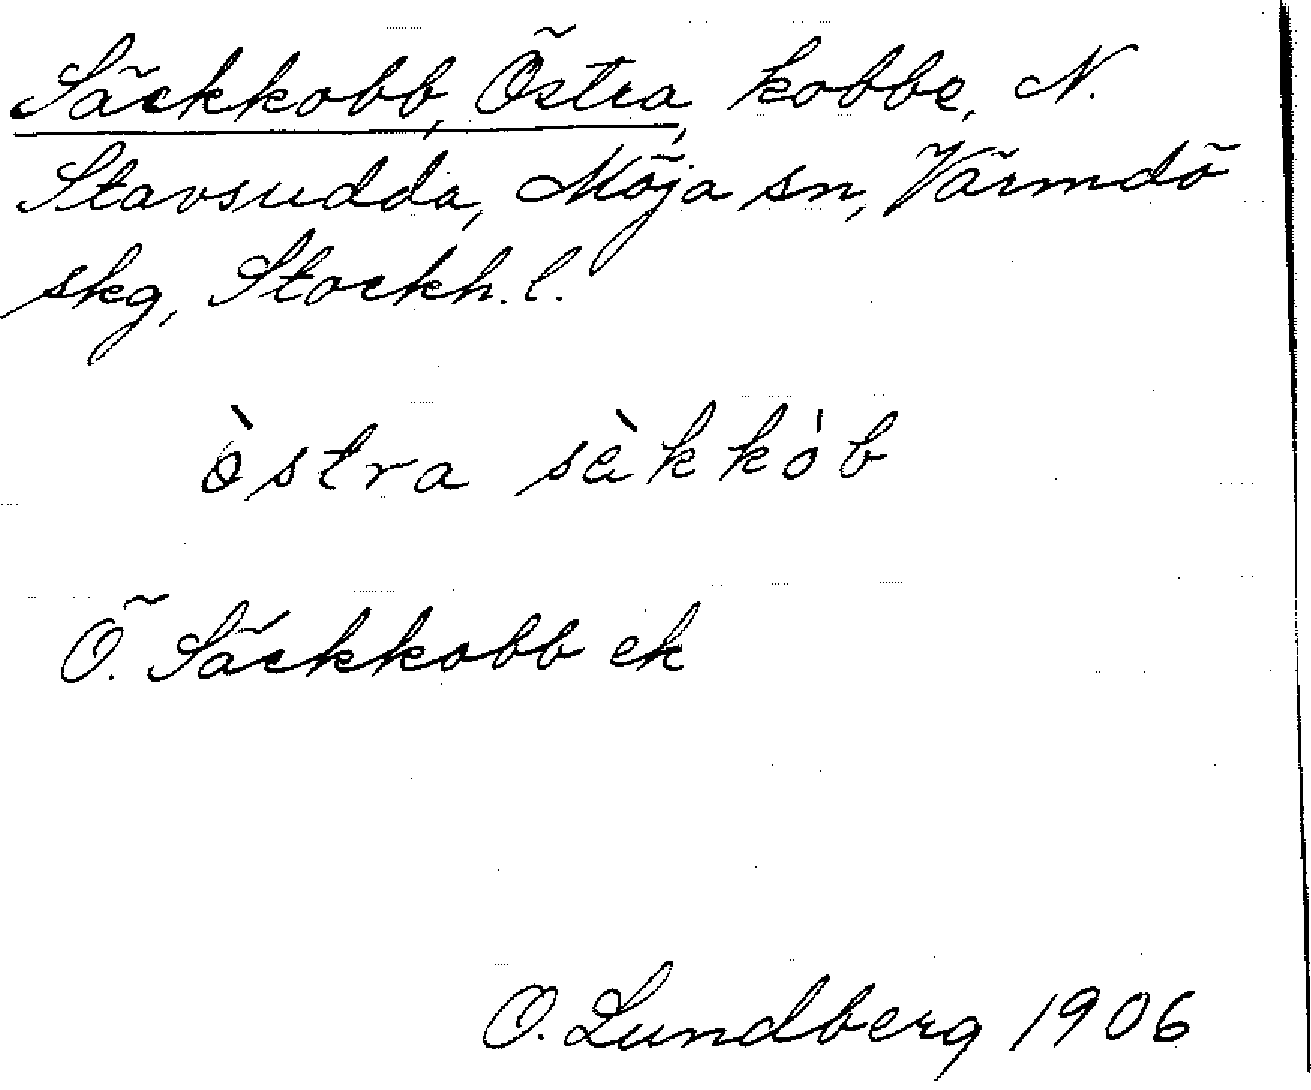 Säckkobb, Östra, kobbe, N.
Stavsudda, Möja sn, Värmdö
skg, Stockh. l.
òstra sàkkób
Ö. Säckkobb ek
O. Lundberg 1906